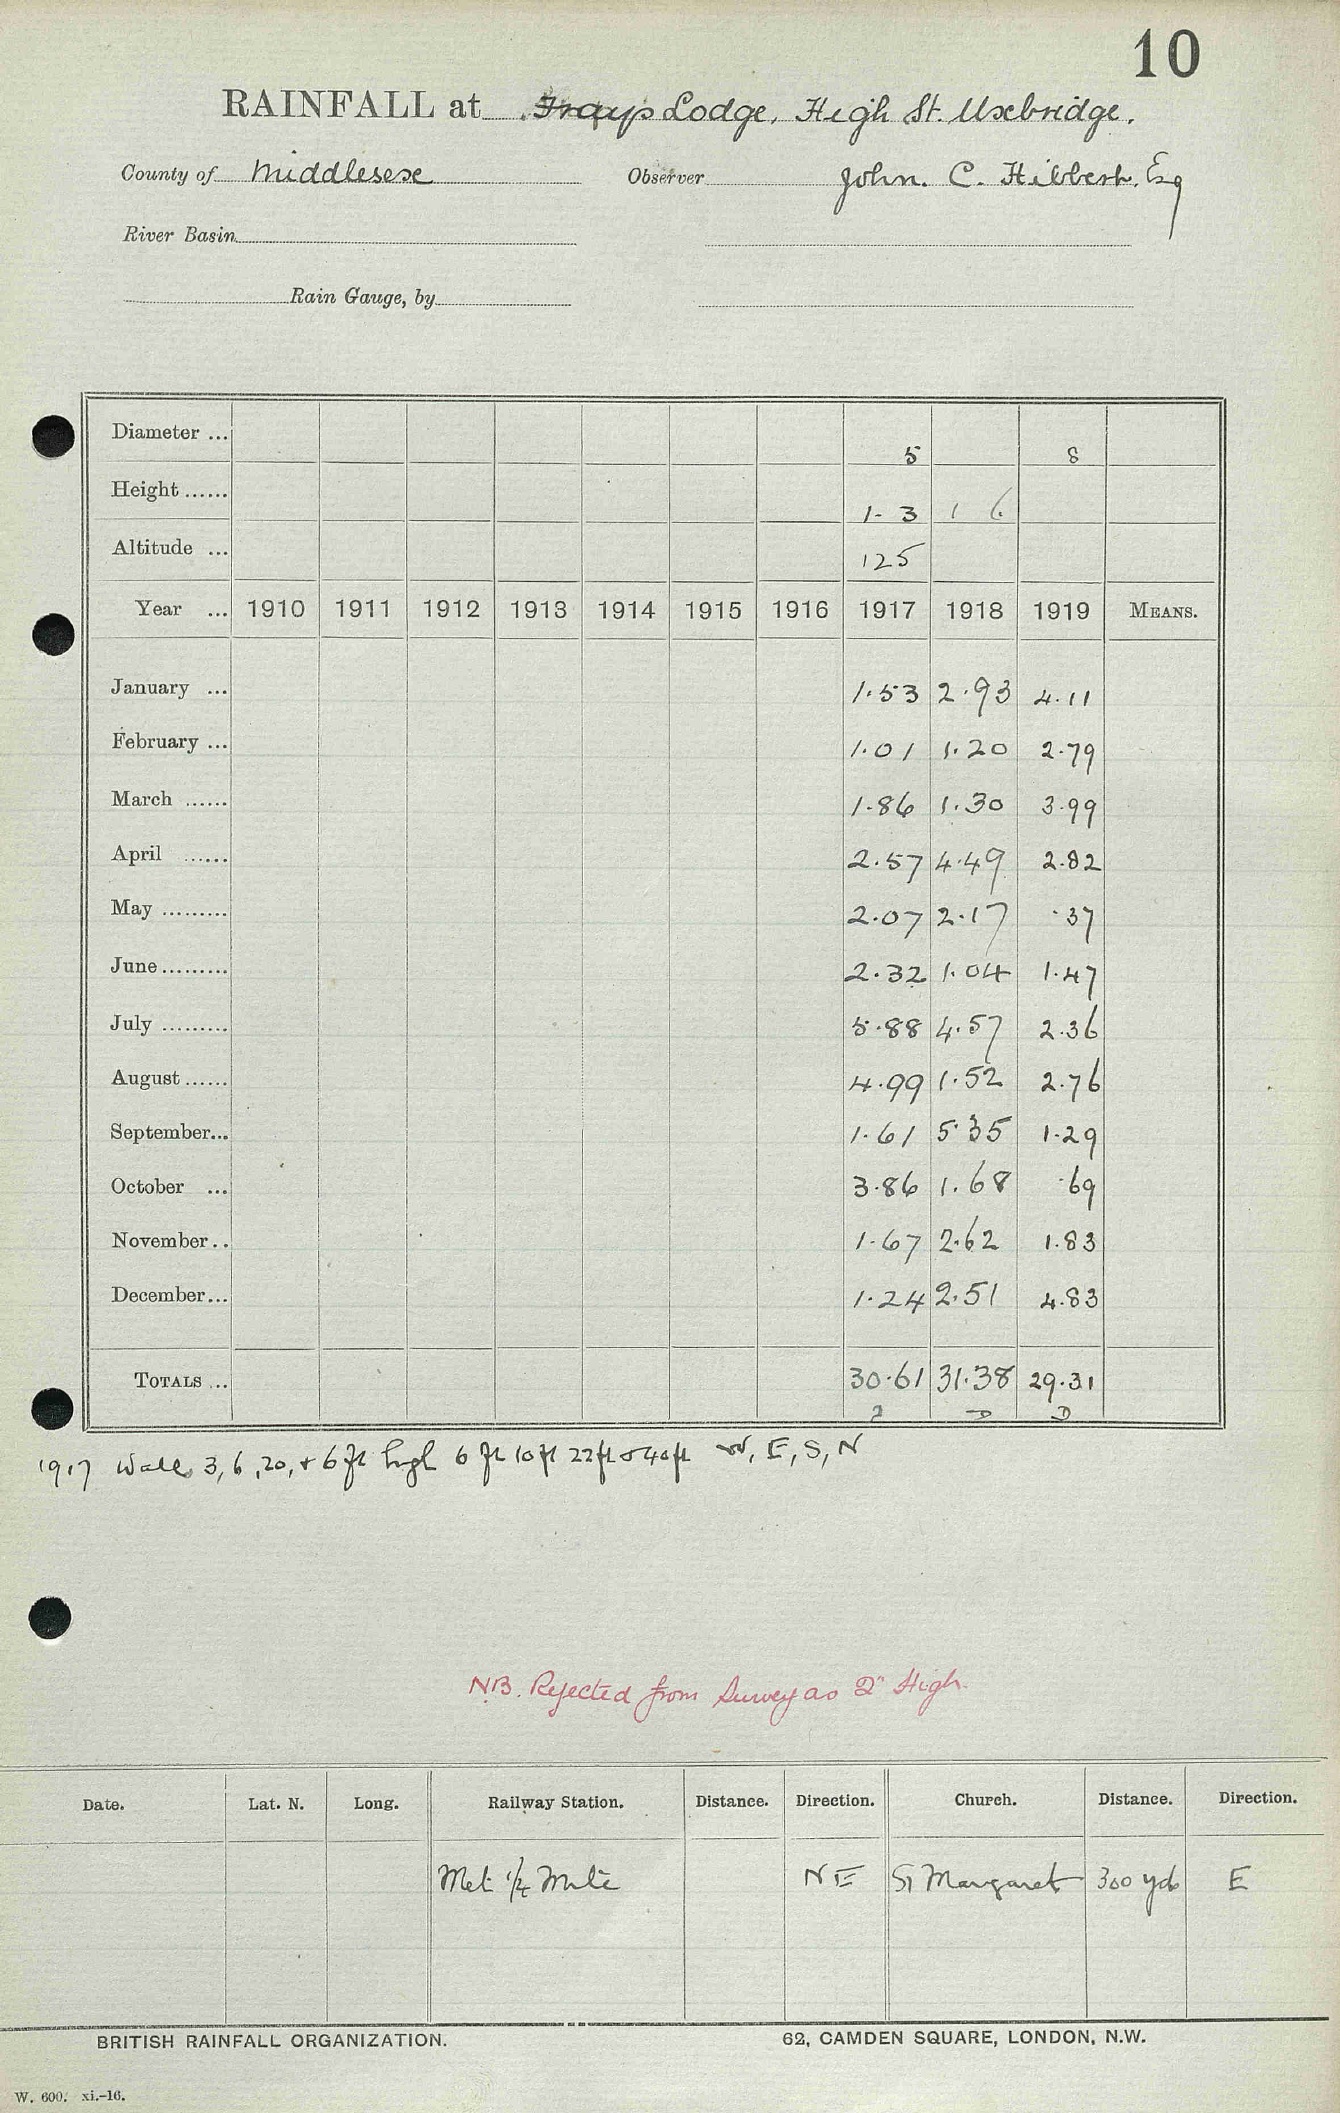 10
RAINFALL at Frays Lodge, High St. Uxbridge.
County of Middlesex Observer John. C. Hibbert. Esq
River Basin
Rain Gauge, by
Diameter ... 5 8
Height ...... 1- 3 1 6
Altitude ... 125
Year ... 1910 1911 1912 1913 1914 1915 1916 1917 1918 1919 MEANS.
January ... 1.53 2.93 4.11
February ... 1.01 1.20 2.79
March ...... 1.86 1.30 3.99
April ...... 2.57 4.49 2.82
May ......... 2.07 2.17 .37
June ......... 2.32 1.04 1.47
July ......... 5.88 4.57 2.36
August ...... 4.99 1.52 2.76
September... 1.61 5.35 1.29
October ... 3.86 1.68 .69
November .. 1.67 2.62 1.83
December... 1.24 2.51 4.83
TOTALS ... 30.61 31.38 29.31
D D
1917 Walls 3, 6, 20, + 6 ft high 6 ft 10 ft 22 ft & 40 ft W, E, S, N
N.B. Rejected from Survey as 2" High.
Date. Lat. N. Long. Railway Station. Distance. Direction. Church. Distance. Direction.
Met 1/4 Mile NE St Margaret 300 yds E
BRITISH RAINFALL ORGANIZATION. 62, CAMDEN SQUARE, LONDON, N.W.
W. 600. xi.-16.